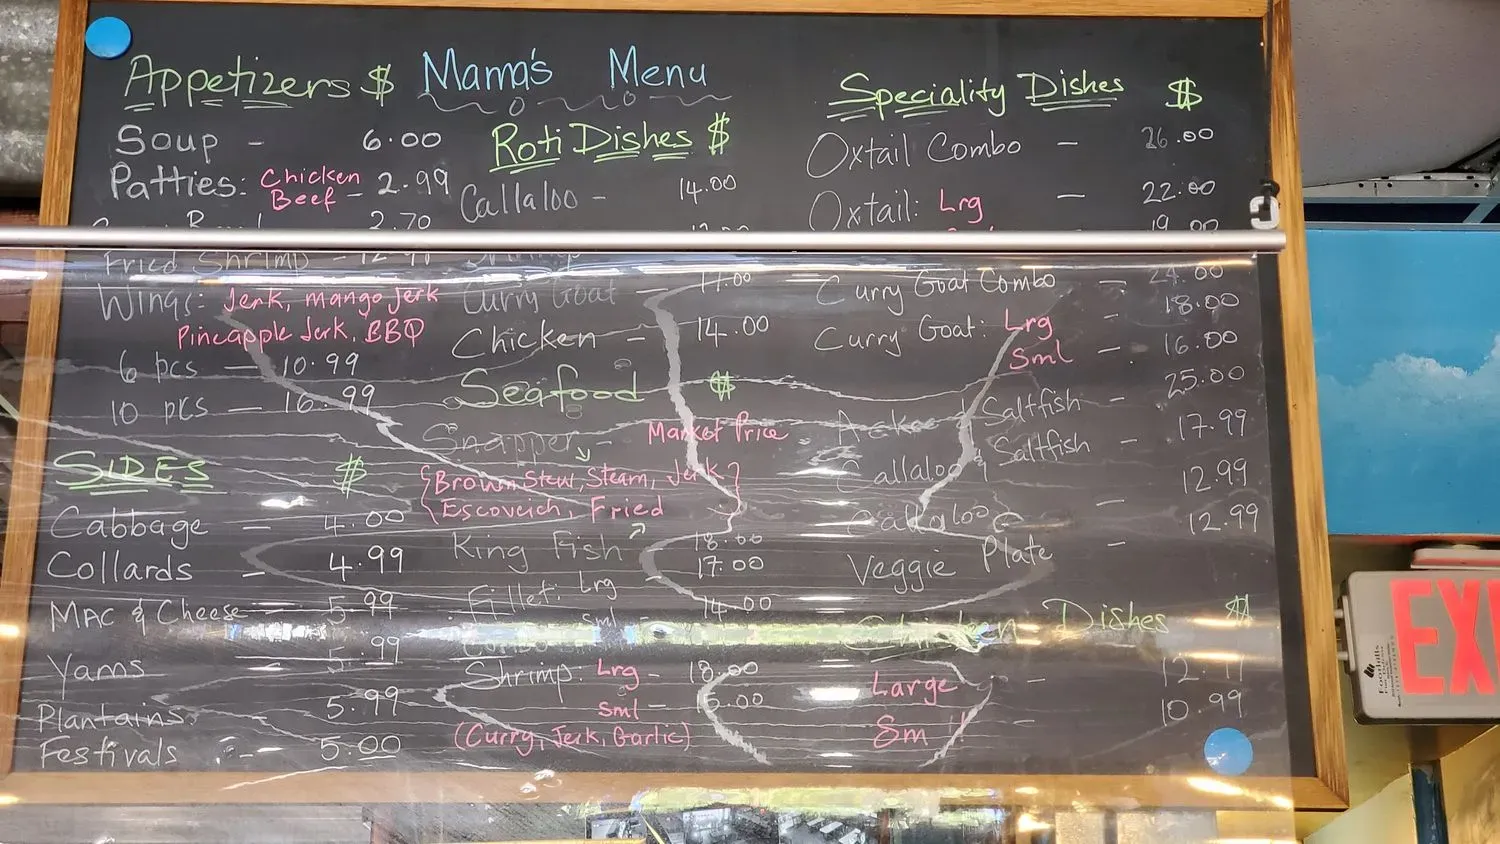 Mama's Menu
Appetizers $
Soup - 6.00
Patties: Chicken - 2.99
Beef
2.70
Fried Shrimp -
Wings: Jerk, mango Jerk
Pineapple Jerk, BBQ
6 pcs — 10.99
10 pcs — 16.99
SIDES $
Cabbage — 4.00
Collards - 4.99
MAC & Cheese - 5.99
Yams 5.99
Plantains 5.99
Festivals - 5.00
Roti Dishes $
Callaloo - 14.00
Curry Goat - 17.00
Chicken - 14.00
Seafood $
Snapper - Market Price
{Brown Stew, Steam, Jerk}
{Escoveich, Fried
King Fish 18.00
Fillet: Lrg - 17.00
sml 14.00
Combo
Shrimp: Lrg - 18.00
sml - 15.00
(Curry, Jerk, Garlic)
Speciality Dishes $
Oxtail Combo - 26.00
Oxtail: Lrg - 22.00
19.00
Curry Goat Combo - 24.00
Curry Goat: Lrg - 18.00
Sml - 16.00
Ackee & Saltfish - 25.00
Callaloo & Saltfish - 17.99
Callaloo 12.99
Veggie Plate - 12.99
Chicken Dishes $
Large -
Sm - 10.99
EXI